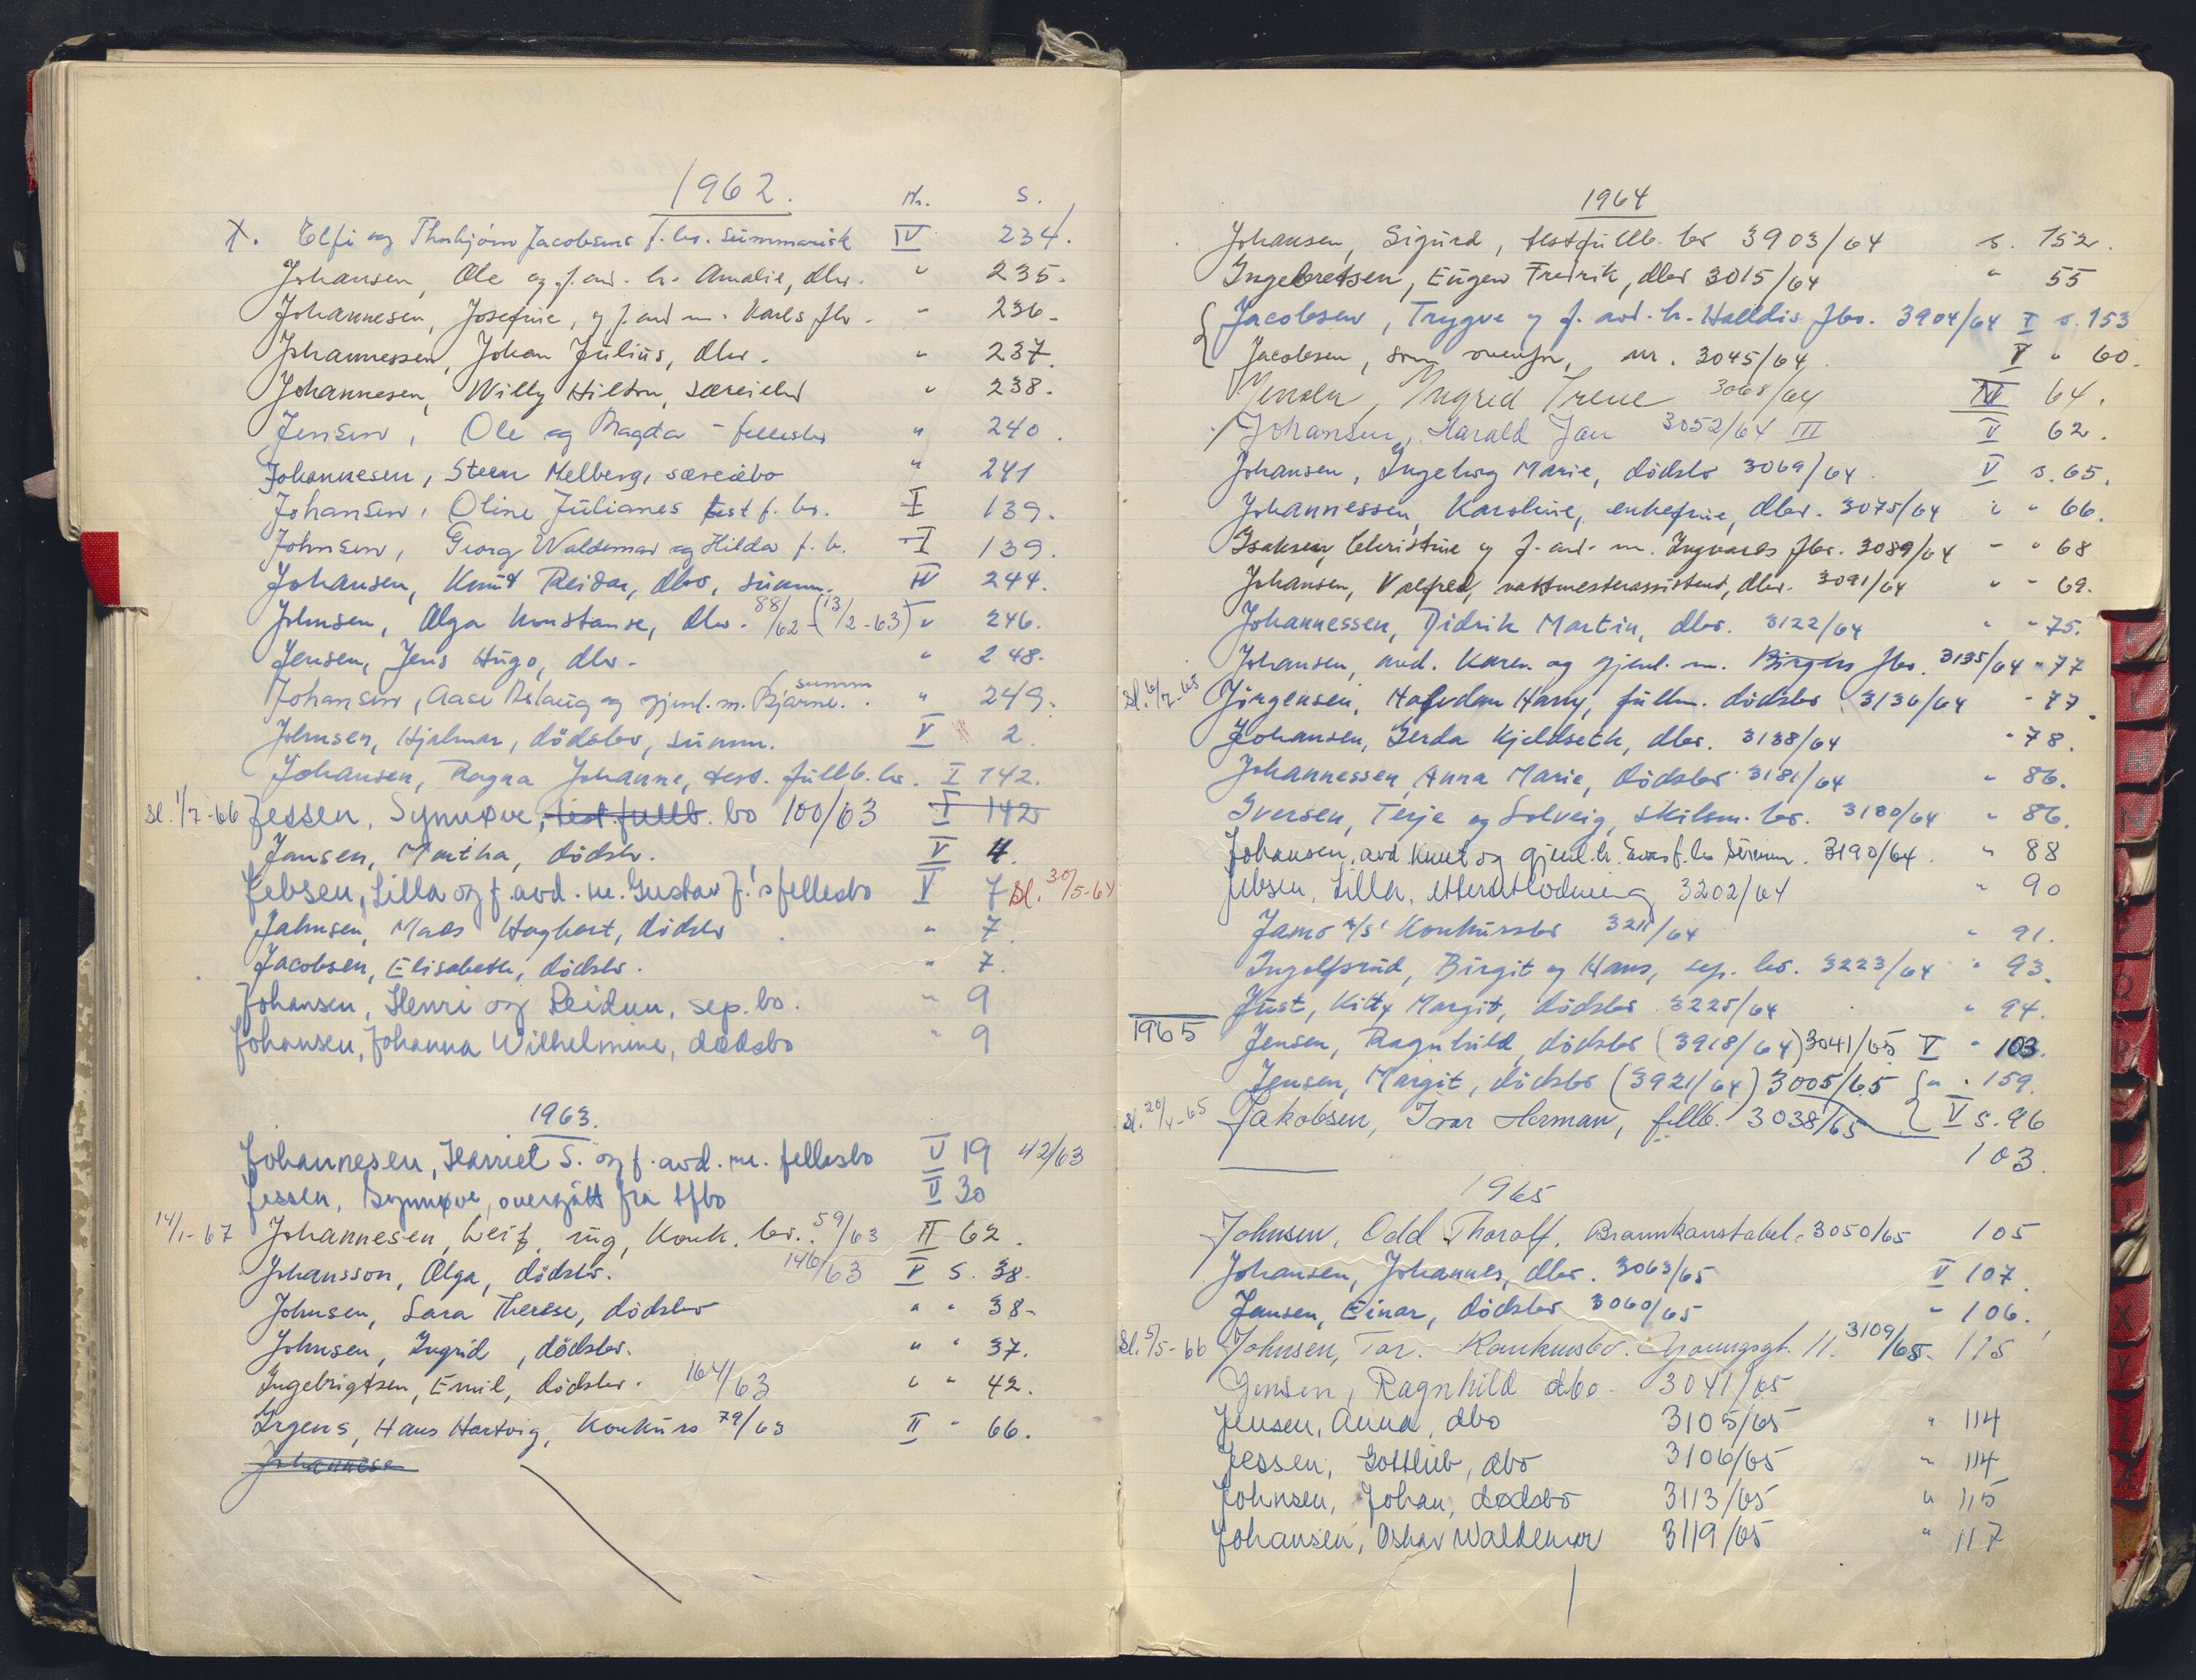 1962. Nr. S.
X. Elfi og Thorbjörn Jacobsens f.bo. summarisk IV 234.
Johansen, Ole og f. avd. h. Amalie, dbo. " 235.
Johannesen, Josefine, og f. avd m. Karls fbo. " 236.
Johannessen, Johan Julius, dbo. " 237.
Johannesen, Willy Hilton, særeiebo " 238.
Jensen, Ole og Magda - fellesbo " 240.
Johannesen, Steen Melberg, særeiebo " 241
Johansen, Oline Julianes test f. bo. I 139.
Johnsen, Georg Waldemar og Hilda f. b. I 139.
Johansen, Knut Reidar, dbo, summ. IV 244.
Johnsen, Olga Konstanse, dbo. 88/62 - (13/2-63) " 246.
Jensen, Jens Hugo, dbo - " 248.
Johansen, Aase Aslaug og gjenl. m. Bjarne. summ " 249.
Johnsen, Hjalmar, dödsbo, summ. V 2.
Johansen, Ragna Johanne, test. fullb. bo. I 142.
sl. 1/7-66 Jessen, Synnøve, test. fullb. bo 100/63 I 142
Jansen, Martha, dödsbo. V 4.
Jebsen, Lilla og f. avd. m. Gustav J.'s fellesbo V 7 sl. 30/5-64
Jahnsen, Mads Hagbart, dödsbo " 7.
Jacobsen, Elisabeth, dödsbo. " 7.
Johansen, Henri og Reidun, sep. bo. " 9
Johansen, Johanna Wilhelmine, dødsbo " 9
1963.
Johannesen, Harriet S. og f. avd. m. fellesbo V 19 42/63
Jessen, Synnøve, overgått fra tfbo V 30
14/1-67 Johannesen, Leif, ing, Konk. bo. 59/63 II 62.
Johansson, Olga, dödsbo. 146/63 V S. 38.
Johnsen, Sara Therese, dödsbo " " 38-
Johnsen, Ingrid, dödsbo. " " 37.
Ingebrigtsen, Emil, dödsbo. 164/63 " " 42.
Irgens, Hans Hartvig, Konkurs 79/63 II " 66.
Johannesen
1964
Johansen, Sigurd, testfullb. bo 3903/64 s. 152.
Ingebretsen, Eugen Fredrik, dbo 3015/64 " 55
Jacobsen, Trygve og f. avd. h. Halldis fbo. 3904/64 I s. 153
Jacobsen, som ovenfor, nr. 3045/64 V " 60.
Jensen, Ingrid Irene 3068/64 IV 64.
Johansen, Harald Jan 3052/64 III V 62.
Johansen, Ingeborg Marie, dödsbo 3069/64 V s. 65.
Johannessen, Karoline, enkefrue, dbo. 3075/64 " " 66.
Isaksen, Christine og f. avd. m. Ingvards fbo. 3089/64 " " 68
Johansen, Valfred, vaktmesterassistent, dbo. 3091/64 " " 69.
Johannessen, Didrik Martin, dbo. 3122/64 " " 75.
Johansen, avd. Karen og gjenl. m. Birgers fbo. 3135/64 " 77
sl. 6/7-65 Jörgensen, Halvdan Harry, fullm. dödsbo 3136/64 " 77.
Johansen, Gerda Kjeldseth, dbo. 3138/64 " 78.
Johannessen, Anna Marie, dödsbo 3181/64 " 86.
Iversen, Terje og Solveig, skilsm. bo. 3180/64 " 86.
Johansen, avd Knut og gjenl. h. Evas f. bo Summ. 3190/64. " 88
Jebsen, Lilla, etterutlodning 3202/64 " 90
Jamo A/S' Konkursbo 3211/64 " 91.
Ingolfsrud, Birgit og Hans, sep. bo. 3223/64 " 93.
Just, Kitty Margit, dödsbo 3225/64 " 94.
1965 Jensen, Ragnhild, dödsbo (3918/64) 3041/65 V " 103.
Jensen, Margit, dödsbo (3921/64) 3005/65 " " 159.
sl. 20/4-65 Jakobsen, Ivar Herman, fellb. 3038/65 V s. 96
103.
1965
Johnsen, Odd Tharalf. Brannkonstabel. 3050/65 105
Johansen, Johannes, dbo. 3063/65 V 107.
Jansen, Einar, dödsbo 3060/65 " 106.
Sl. 5/5-66 Johnsen, Tor. Konkursbo. 11. 3109/65. 115
Jensen, Ragnhild dbo. 3041/65
Jensen, Anna, dbo 3105/65 " 114
Jessen, Gottlieb, dbo 3106/65 " 114
Johnsen, Johan, dødsbo 3113/65 " 115
Johansen, Oskar Waldemar 3119/65 " 117